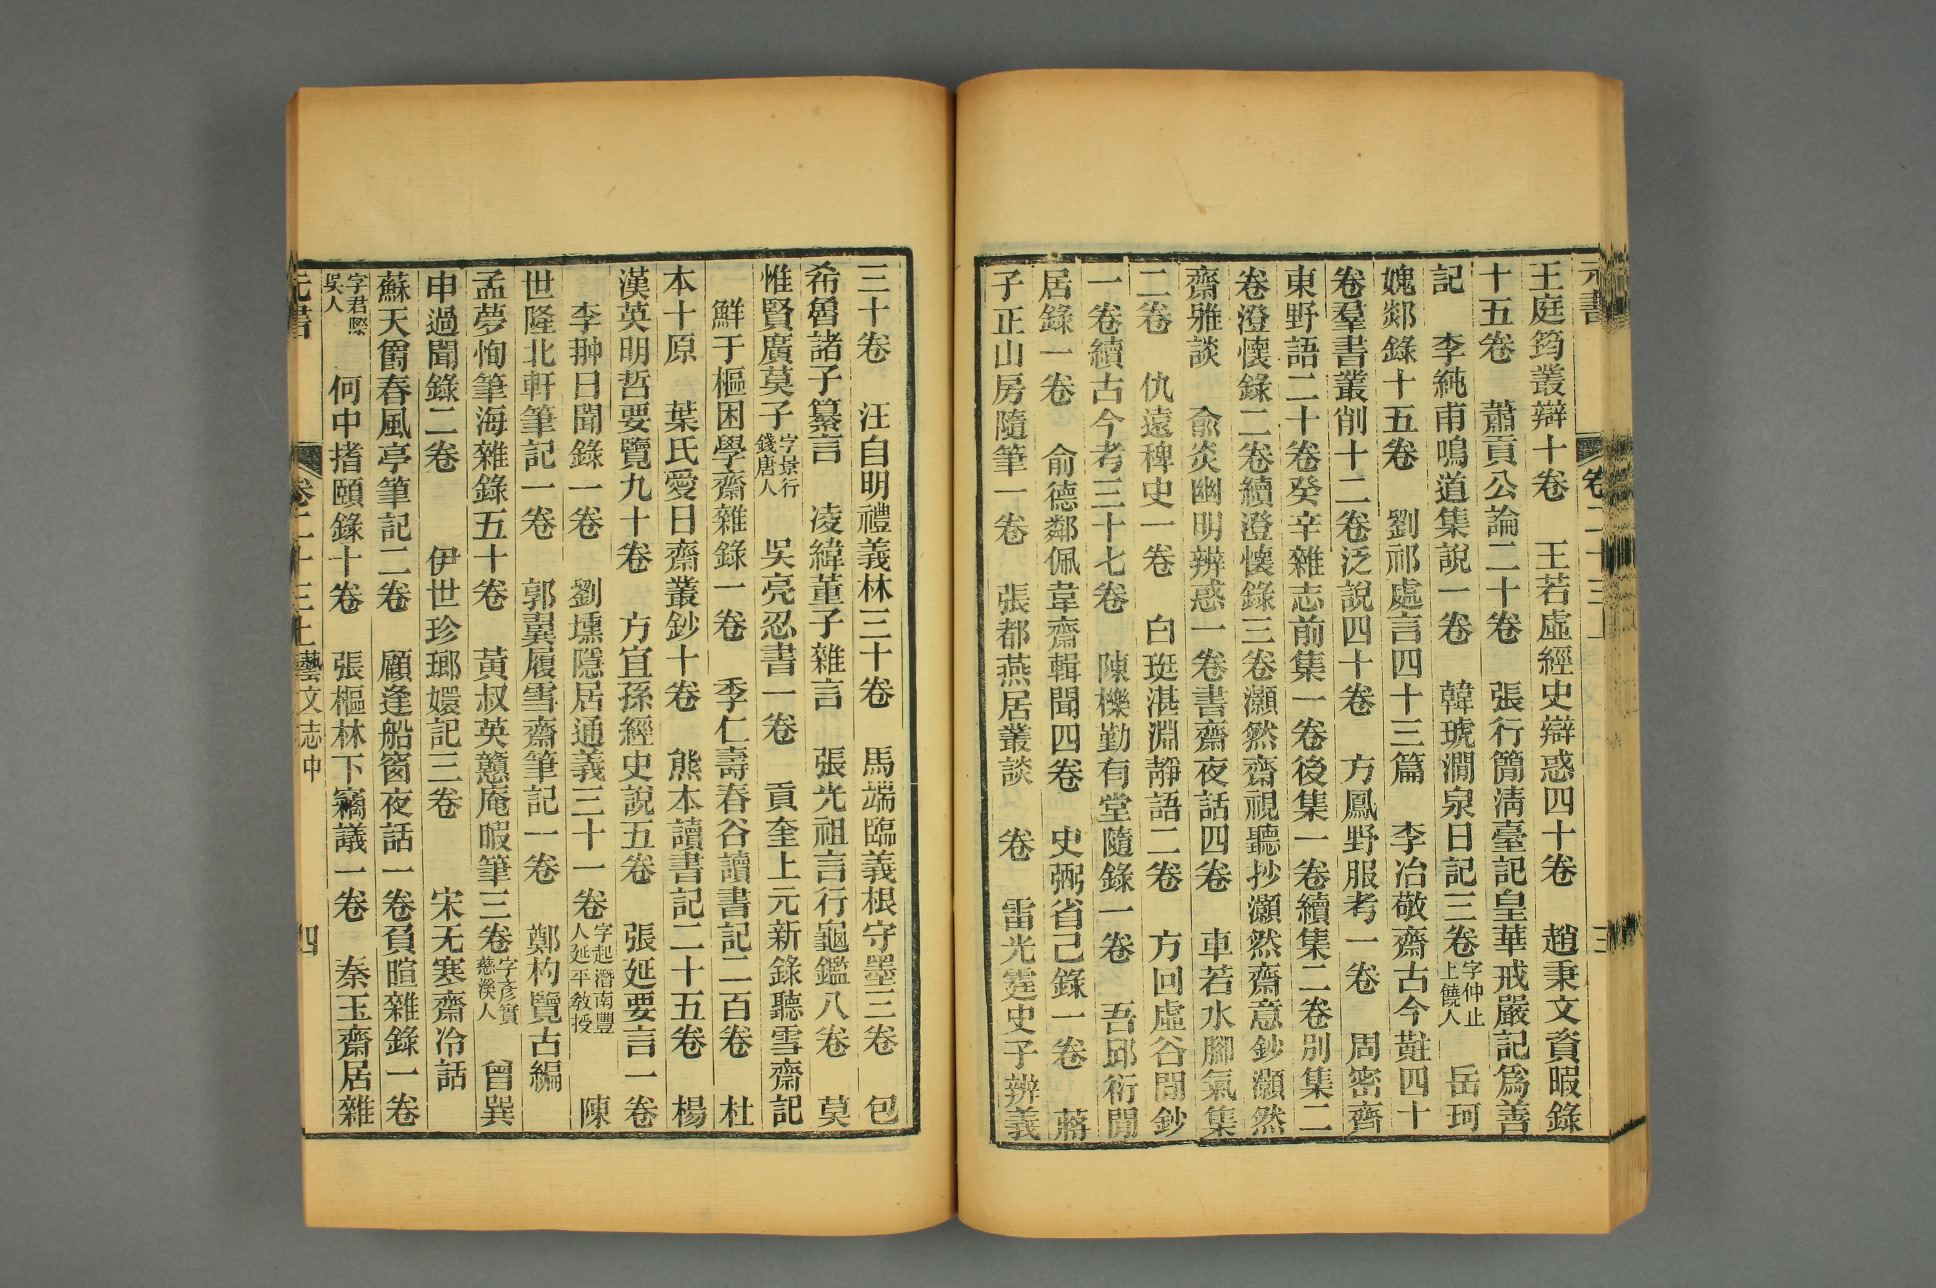 元書 卷二十三上 三
王庭筠叢辯十卷　王若虛經史辯惑四十卷　趙秉文資暇錄
十五卷　蕭貢公論二十卷　張行簡淸臺記皇華戒嚴記爲善
記　李純甫鳴道集說一卷　韓琥澗泉日記三卷字仲止上饒人　岳珂
媿郯錄十五卷　劉祁處言四十三篇　李冶敬齋古今黈四十
卷羣書叢削十二卷泛說四十卷　方鳳野服考一卷　周密齊
東野語二十卷癸辛雜志前集一卷後集一卷續集二卷別集二
卷澄懷錄二卷續澄懷錄三卷灝然齋視聽抄灝然齋意鈔灝然
齋雅談　俞炎幽明辨惑一卷書齋夜話四卷　車若水腳氣集
二卷　仇遠稗史一卷　白珽湛淵靜語二卷　方回虛谷閒鈔
一卷續古今考三十七卷　陳櫟勤有堂隨錄一卷　吾邱衍閒
居錄一卷　俞德鄰佩韋齋輯聞四卷　史弼省己錄一卷　蔣
子正山房隨筆一卷　張都燕居叢談　卷　雷光霆史子辨義
三十卷　汪自明禮義林三十卷　馬端臨義根守墨三卷　包
希魯諸子纂言　凌緯董子雜言　張光祖言行龜鑑八卷　莫
惟賢廣莫子字景行錢唐人　吳亮忍書一卷　貢奎上元新錄聽雪齋記
鮮于樞困學齋雜錄一卷　季仁壽春谷讀書記二百卷　杜
本十原　葉氏愛日齋叢鈔十卷　熊本讀書記二十五卷　楊
漢英明哲要覽九十卷　方宜孫經史說五卷　張延要言一卷
李翀日聞錄一卷　劉壎隱居通義三十一卷字起潛南豐人延平敎授　陳
世隆北軒筆記一卷　郭翼履雪齋筆記一卷　鄭杓覽古編
孟夢恂筆海雜錄五十卷　黃叔英戇庵暇筆三卷字彥實慈溪人　曾巽
申過聞錄二卷　伊世珍瑯嬛記三卷　宋无寒齋冷話
蘇天爵春風亭筆記二卷　顧逢船窗夜話一卷負暄雜錄一卷
字君澤吳人　何中搘頤錄十卷　張樞林下竊議一卷　秦玉齋居雜
元書 卷二十三上 藝文志中 四